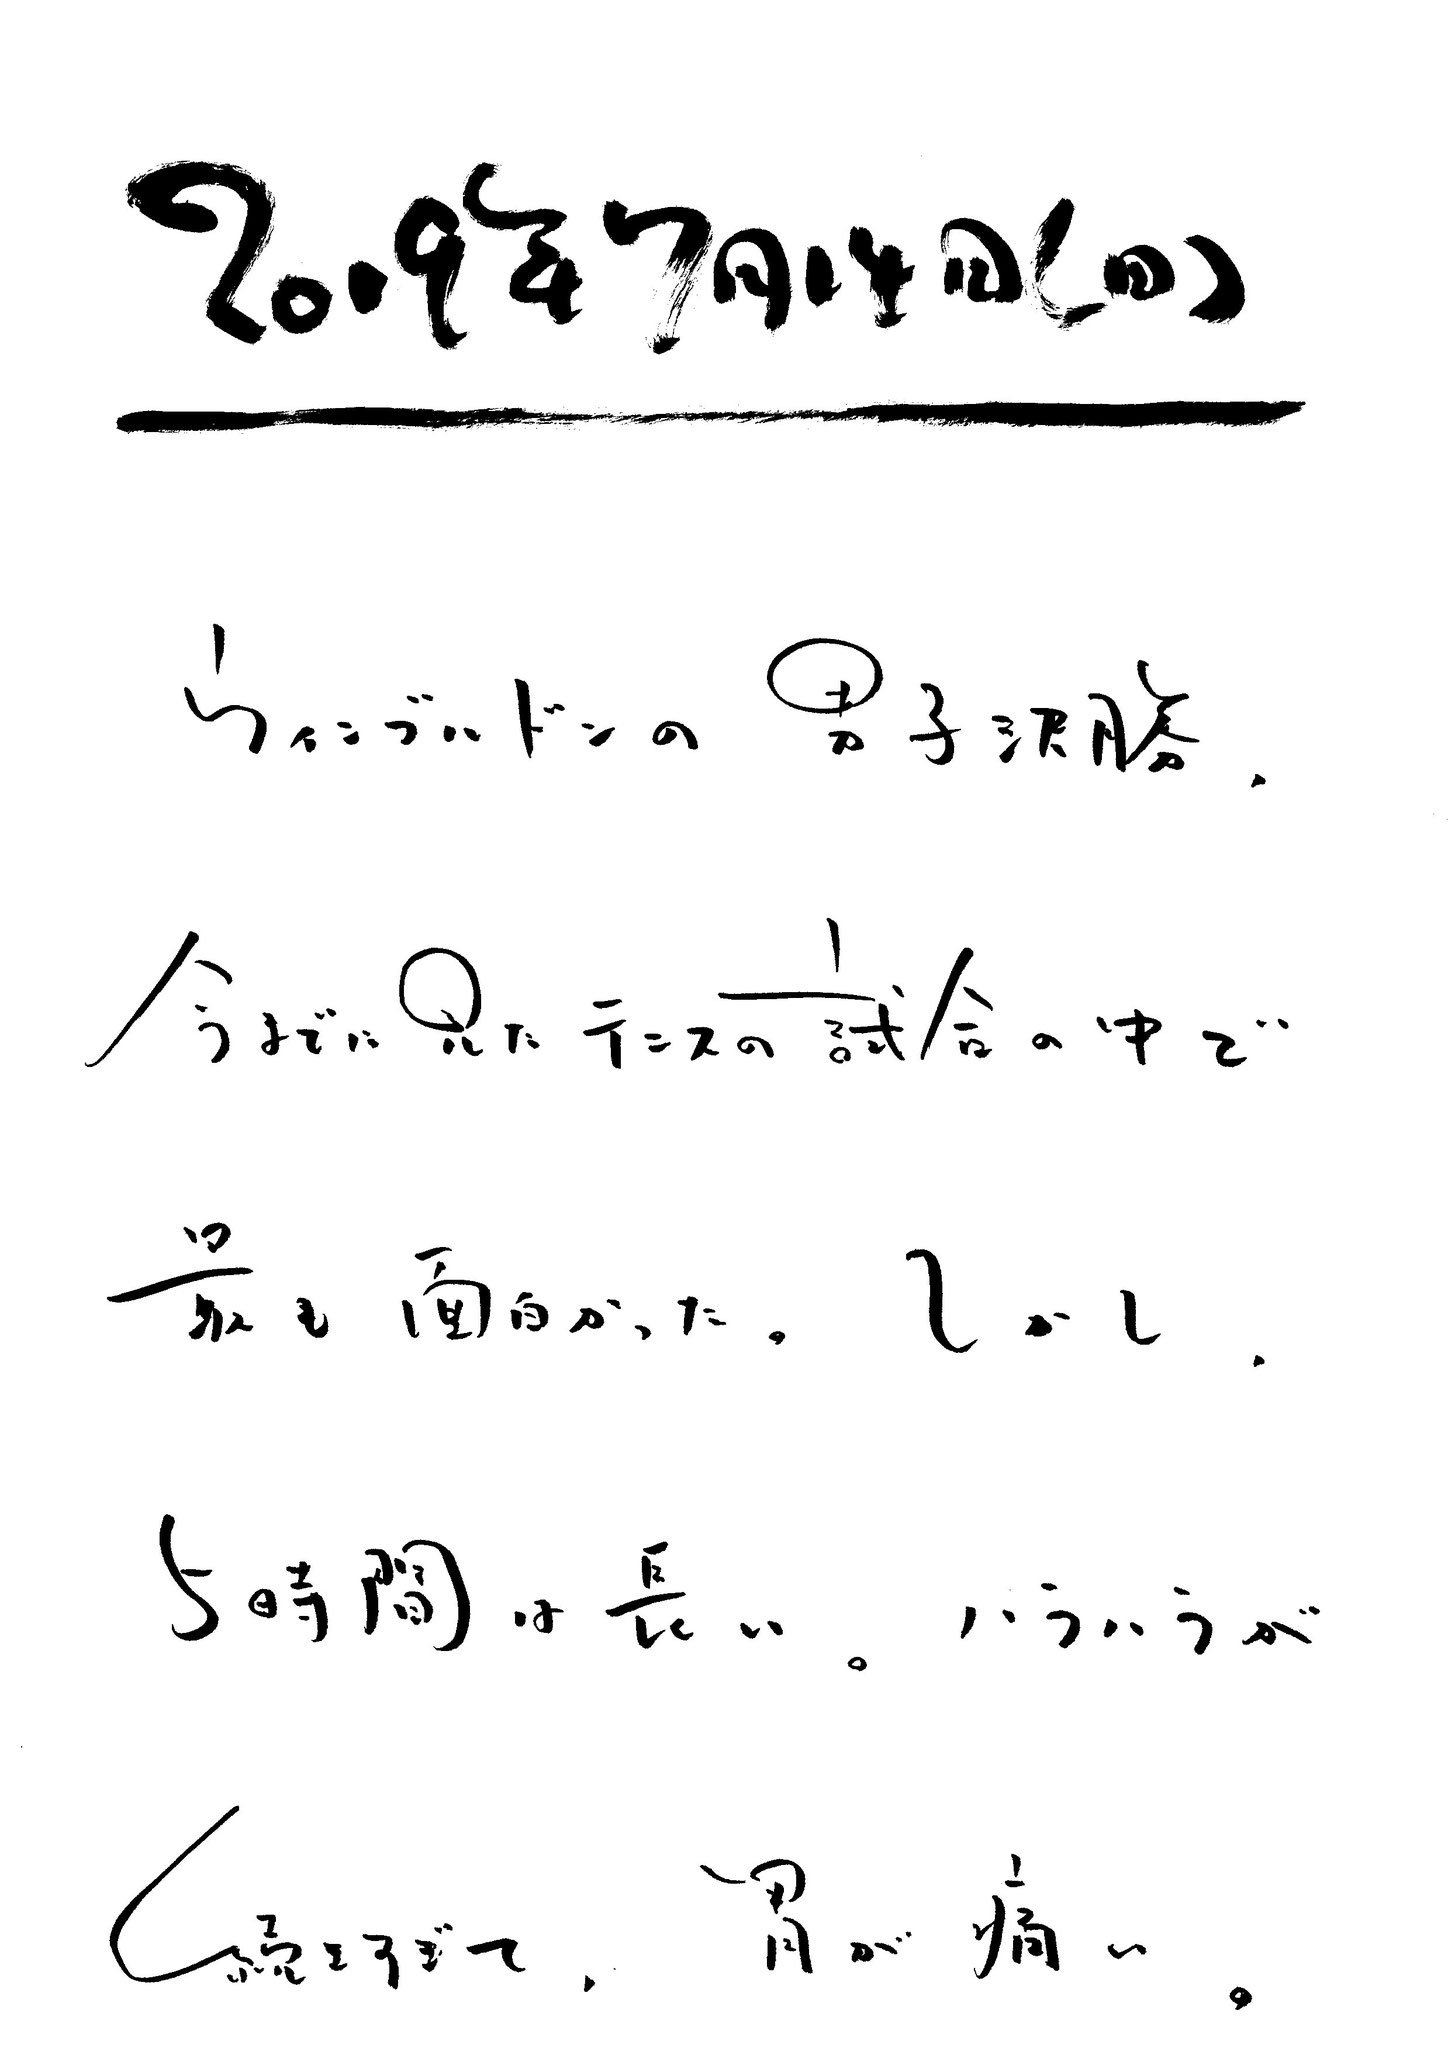 2019年7月14日(日)
ウィンブルドンの男子決勝、
今までに見たテニスの試合の中で
最も面白かった。しかし、
5時間は長い。ハラハラが
続きすぎて、胃が痛い。